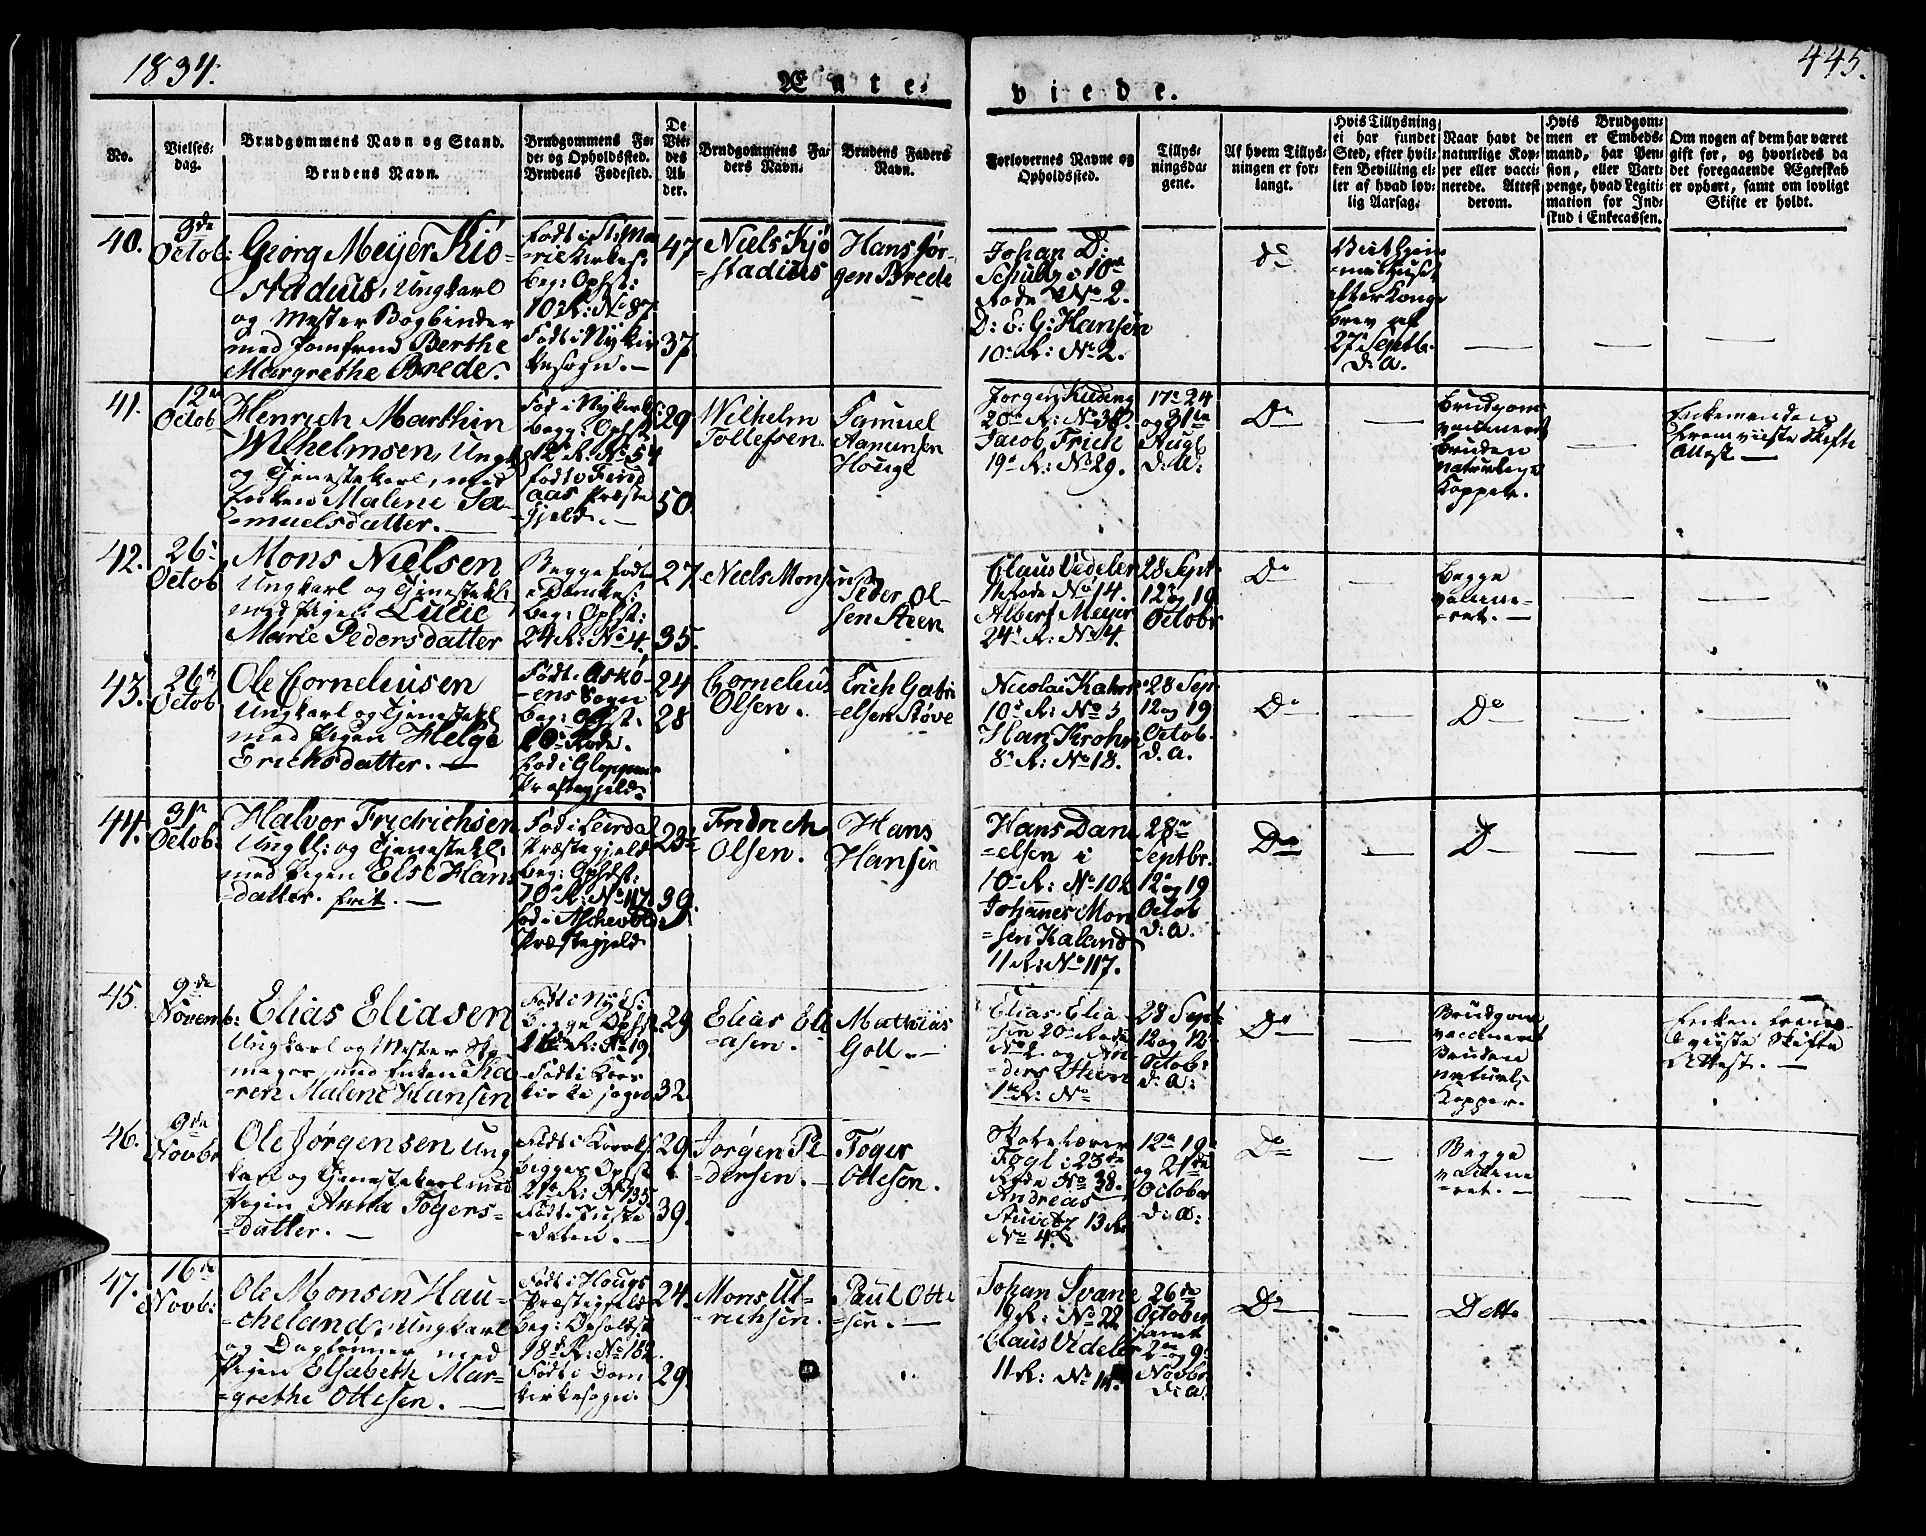 1834.
445.
Ægte-
viede.
No.
Vielses-
dag.
Brudgommens Navn og Stand.
Brudens Navn.
Brudgommens Fø-
de- og Opholdssted.
Brudens Fødested.
De
Vie-
des
Al-
der.
Brudgommens Fa-
ders Navn.
Brudens Faders
Navn.
Forlovernes Navne og
Opholdssted.
Tillys-
ningsda-
gene.
Af hvem Tillys-
ningen er for-
langt.
Hvis Tillysning
ei har fundet
Sted, efter hvil-
ken Bevilling el-
ler af hvad lov-
lig Aarsag.
Naar havt de
naturlige Kop-
per eller vacci-
nerede. Attest
derom.
Hvis Brudgom-
men er Embeds-
mand, har Pen-
sion, eller Vart-
penge, hvad Legiti-
mation for Ind-
skud i Enkecassen.
Om nogen af dem har været
gift før, og hvorledes da
det foregaaende Ægteskab
er ophørt, samt om lovligt
Skifte er holdt.
40.
9de
Octob:
Georg Meyer Kiø-
stadius, Ungkarl
og Mester Bogbinder
med Jomfrue Berthe
Margrethe Brede.
Født i St. Ma-
rie Kirkes:
beg: Ophst:
10 R: No 87
Født i Nykir
kesogn. —
47
37
Niels Kjø
-stadius
Hans Jør-
gen Brede
Johan D:
Schultz i 10de
Rode No 2.
D: E: G: Hansen
10: R: No 2.
do
efter Konge
brev af
27 Septb.
d. a.
41.
12te
Octob
Henrich Marthin
Wilhelmsen, Ungk
og Tjenestekarl, med
Enken Malene Sa-
-muelsdatter. —
Fød i Nykerks:
begg: Ophst
12 R: No 54
født i Find
aas Præste
gjeld. —
29
50.
Wilhelm
Tollefsen.
Samuel
Aamunsen
Houge
Jorgen
20de R: No 38.
Jacob Frich
19: R: No 29.
17 24
og 31te
Augl
d. A:
Do
Brudgom
vaccineret
Bruden
naturlige
Kopper.
Enkemanden
fremviiste Skifte
Attest —
42.
26:
Octob
Mons Nielsen
Ungkarl og Tjenestekl:
med Pigen Lucie
Marie Pedersdatter
Begge født
i Domkes:
beg: Ophst:
24 R: No 4.
27
35.
Niels Monsen
Peder Ol-
sen Steen
Claus Videler
11 Rode No 14.
Albert Meyer
24: R: No 4.
28 Sept
12 og 19
Octobr
Do
Begge
vaccine-
-ret. —
43.
26te
Octob
Ole Cornelius­en
Ungkarl og Tjenestekl
med Pigen Helge
Ericksdatter. —
Født i Askø-
-ens Sogn
beg: Ophst.
10: Rode.
Fød i Gloppens
Præstegjeld.
24
28
Cornelius
Olsen.
Erich Gabri
-elsen Støve
Nicolai Kahrs
10: R: No 5
Han Krohn
8: R: No 18.
28 Sep
12 og 19
Octob.
d. a.
Do
Do
44.
31te
Octob:
Halvor Fredrichsen
Ungkl: og Tjenestekl:
med Pigen Else Hans
-datter. frit. —
Fød i Leirdal
Præstegjeld
beg: Ophdst:
10de R: No 117.
Fød i Alchevold
Præstegjeld
23
39.
Fredrich
Olsen.
Hans
Hansen
Hans Dani
-elsen i
10: R: No 102
Johannes Mon
-sen Kaland
11 R: No 117.
28de
Septbr.
12 og 19
Octob
d: A.
Do
D
45.
9de
Novemb:
Elias Eliasen
Ungkarl og Mester Sko-
mager, med Enken Ka-
-ren Malene Hansen
Født i Nyks:
Begge Ophst
R: No 19.
Født i Kors
kirke sogn
29.
32.
Elias Eli
-asen.
Mathias
Goll. —
Elias Elia
-sen 20: Rode
No 2. og An-
ders
1te R: No
28 Sept
12 og 12
Octob:
d: A:
Do
Brudgom
vaccineret
Bruden
naturl:
Kopper.
Enken frem-
viiste Skifte
Attest. —
46.
9de
Novbr
Ole Jørgensen Ung
karl og Tjenestekarl med
Pigen Anna Tøgers-
-datter. —
Født i Korsk:
begges Ophst
21de R: No 135
Født i Juste
dalen. —
29
39.
Jørgen Pe
-dersen. —
Tøger
Ottesen.
Skolelærer
Fogl i 23de
Rode No 38.
Andreas
13 R:
No 4.
12te 19
og 21de
October
d: a:
Do
Begge
vaccine
-ret. —
47.
16de
Novb:
Ole Monsen Hau-
-cheland, Ungkarl
og Dagtønner med
Pigen Elsabeth Mar-
-grethe Ottesen. —
Født i Hougs
Præstegjeld
beg: Opholdst
18de R: No 162.
Født i Dom
kirkesogn.
24.
29.
Mons Ul-
-richsen.
Paul Otte
-sen. —
Johan Svane
19 R: No 22
Claus Videler
11 R: No 14
26de
October
samt
2den og 9:
Novbr
d: a.
Do
Dette